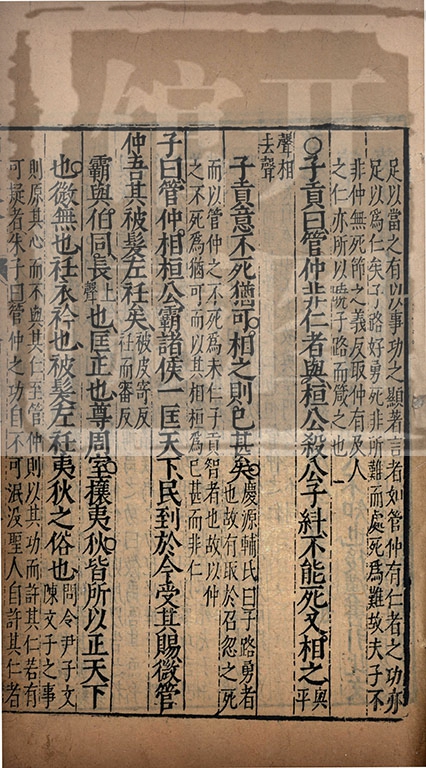 足以當之有以事功之顯著言者如管仲有仁者之功亦
足以為仁矣子路好勇死非所難而處死為難故夫子不
非仲無死節之義反取仲有及人
之仁亦所以曉子路而箴之也
○子貢曰管仲非仁者與桓公殺公子糾不能死又相之與平
聲相去聲
子貢意不死猶可相之則已甚矣慶源輔氏曰子路勇者也故有取於召忽之死
而以管仲之不死為未仁子貢智者也故以仲
之不死為猶可而以其相桓為已甚而非仁
子曰管仲相桓公霸諸侯一匡天下民到於今受其賜微管
仲吾其被髮左衽矣被皮寄反衽而審反
霸與伯同長上聲也匡正也尊周室攘夷狄皆所以正天下
也微無也衽衣衿也被髮左衽夷狄之俗也問令尹子文陳文子之事
則原其心而不與其仁至管仲則以其功而許其仁若有
可疑者朱子曰管仲之功自不可泯没聖人自許其仁者